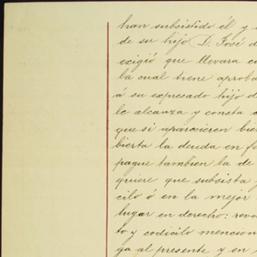 han subsistido él y
de su hijo D. José d
exigió que llevara cu
la cual tiene aproba
á su expresado hijo d
le alcanza y consta
que si aparecieren bie
bierta la deuda en fo
pague tambien la de
quiere que subsista
cilo ó en la mejor
lugar en derecho: revo
to y codicilo mencion
ga al presente y en